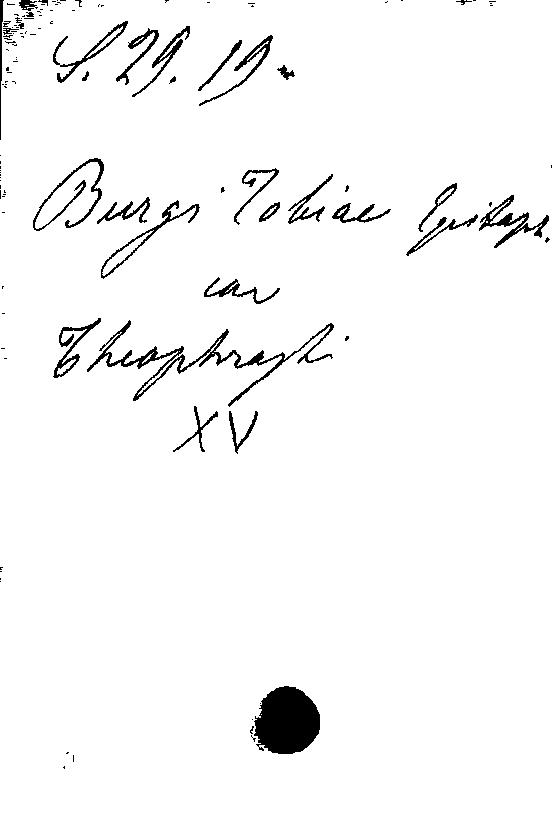 S. 29. 19.
Burgi Tobiae Epitaph.
in
Theophrasti
XV